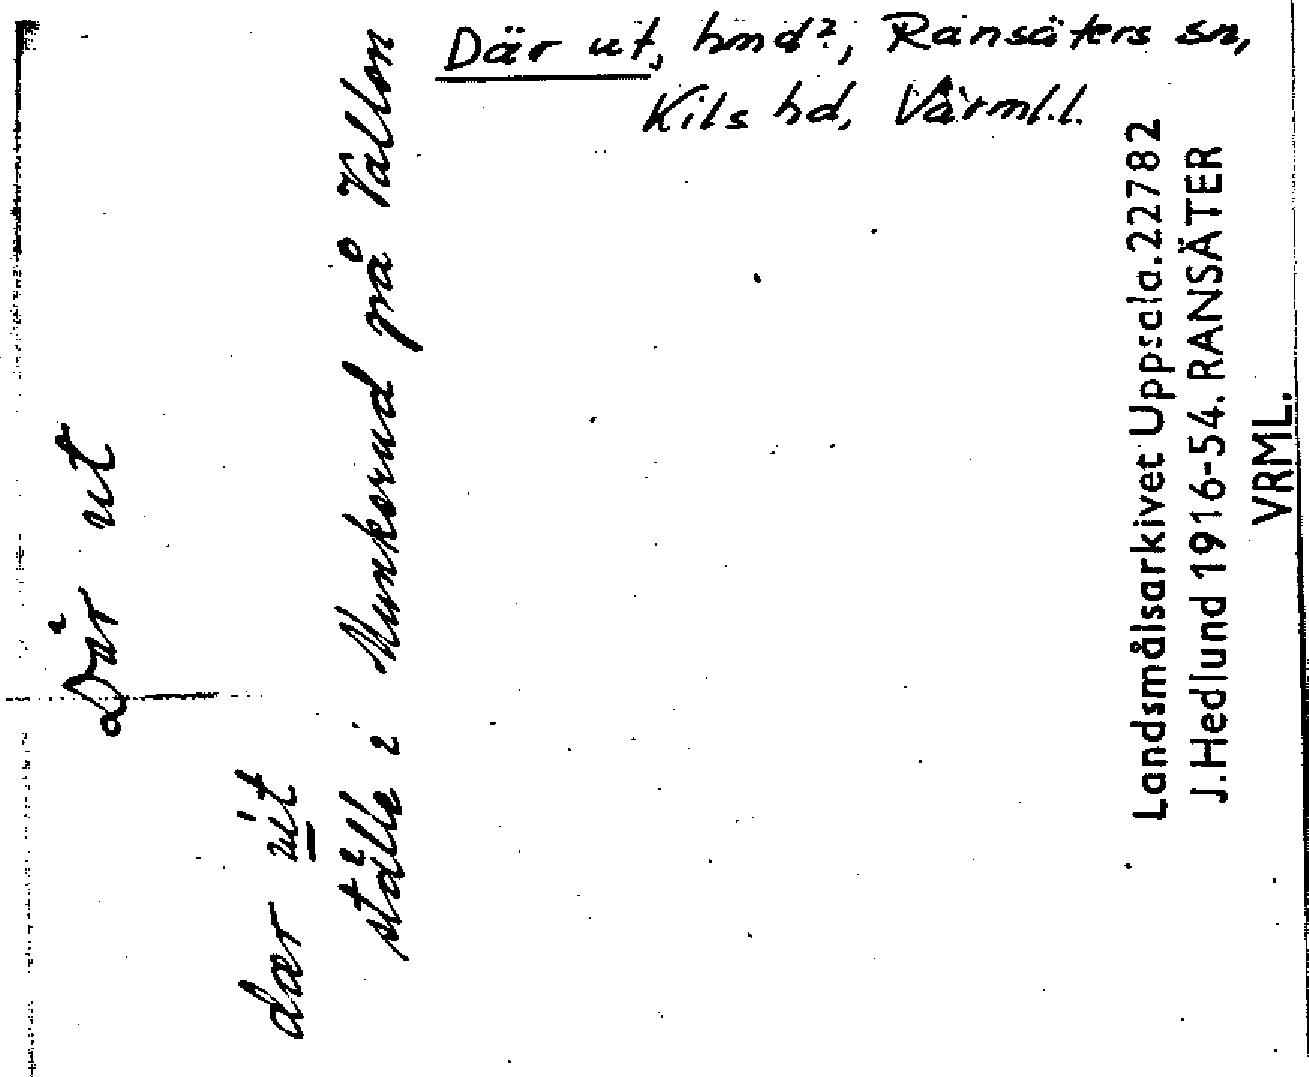 Där ut, hmd?, Ransäters sn,
Kils hd, Värml.l.
Där ut
dær út
ställe i Munkerud på Vallen
Landsmålsarkivet Uppsala.22782
J.Hedlund 1916-54. RANSÄTER
VRML.